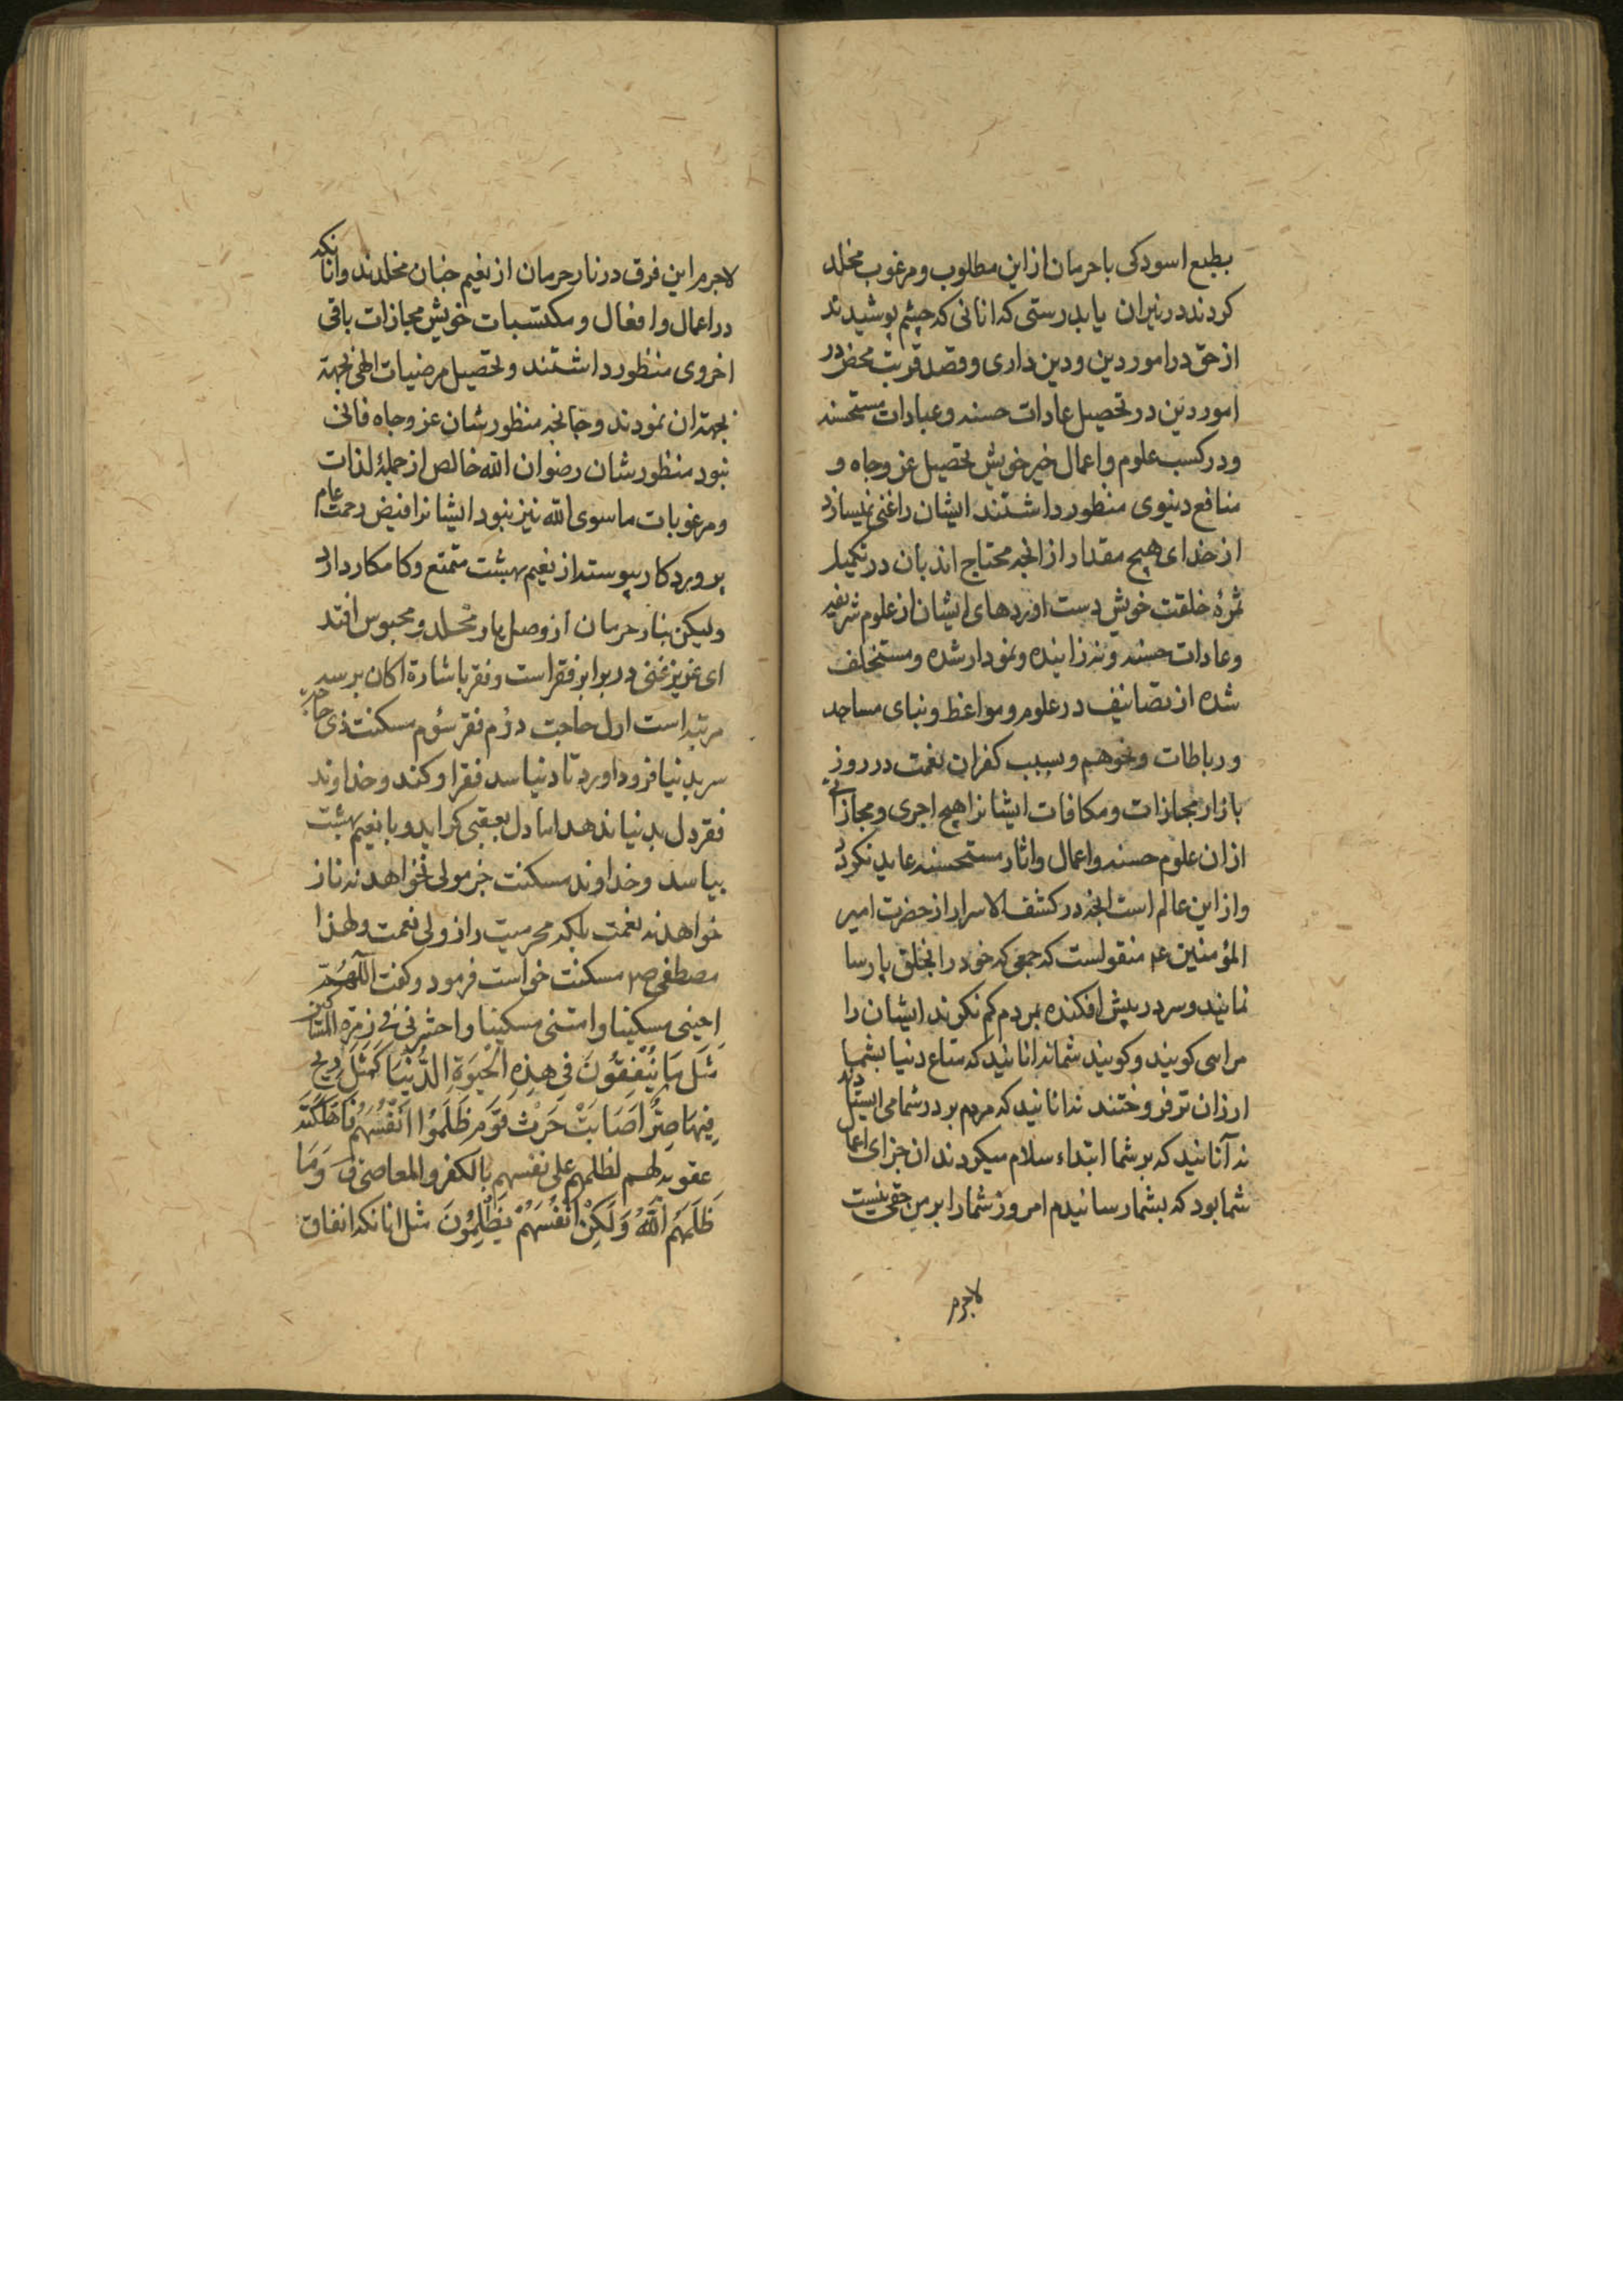 بطبع اسودکی با حرمان از این مطلوب و مرغوب مخلد
کردند در نیران یا بدرستی که انانی که چشم پوشیدند
از حق در امور دین و دین داری و قصد قربت محض در
امور دین در تحصیل عادات حسنه و عبادات مستحسنه
و در کسب علوم و اعمال خیر خویش تحصیل عز و جاه و
منافع دنیوی منظور داشتند ایشان را غنی نمیسازد
از خدای هیچ مقدار از انچه محتاج اند بان در تکمیل
ثمرهٔ خلقت خویش دست اوردهای ایشان از علوم شریفه
و عادات حسنه و نه زاینده و نمودار شده و مستخلف
شده از تصانیف در علوم و مواعظ و بنای مساجد
و رباطات و نحوهم و بسبب کفران نعمت در روز
بازار مجازات و مکافات ایشانرا هیچ اجری و مجازاتی
از ان علوم حسنه و اعمال و اثار مستحسنه عاید نکردد
و از این عالم است انچه در کشف الاسرار از حضرت امیر
المؤمنین عم منقولست که جمعی که خود را بخلق پارسا
نمایند و سر در پیش افکنده بمردم کم نکرند ایشان را
مراسی کویند و کویند شما نه انانید که متاع دنیا بشما
ارزان تر فروختند نه انانید که مردم بر در شما می ایستادند
نه آنانید که بر شما ابتداء سلام میکردند ان جزای اعمال
شما بود که بشما رسانیدم امروز شما را بر من حقی نیست
لاجرم
لاجرم این فرق در نار حرمان از نعیم جنان مخلدند و انانکه
در اعمال و افعال و مکتسبات خویش مجازات باقی
اخروی منظور داشتند و تحصیل مرضیات الهی بجهة
بجهة ان نمودند و چنانچه منظورشان عز و جاه فانی
نبود منظورشان رضوان الله خالص از جملهٔ لذات
و مرغوبات ماسوی الله نیز نبود ایشانرا فیض رحمت عام
پروردکار پیوسته از نعیم بهشت متمتع و کامکار دارد
ولیکن بنار حرمان از وصل یار مخلد و محبوس افتد
ای عزیز غنی در برابر فقر است و فقر باشارة اکان بر سه
مرتبه است اول حاجت دوم فقر سوم مسکنت ذی حاجة
سر بدنیا فرود اورد تا دنیا سد فقر او کند و خداوند
فقر دل بدنیا ندهد اما دل بعقبی کراید و با نعیم بهشت
بیاسد و خداوند مسکنت جز مولی نخواهد نه ناز
خواهد نه نعمت بلکه محرمیت راز ولی نعمت و لهذا
مصطفی صم مسکنت خواست فرمود و کفت اللّهُمَّ
احینی مسکینا و امتنی مسکینا و احشرنی فی زمرة المساکین
مَثَلُ مَا یُنْفِقُونَ فِی هذِهِ الْحَیٰوةِ الدُّنْیَا کَمَثَلِ رِیحٍ
فِیهَا صِرٌّ اَصَابَتْ حَرْثَ قَوْمٍ ظَلَمُوا اَنْفُسَهُمْ فَاَهْلَکَتْهُ
عقوبة لهم لظلمهم علی نفسهم بالکفر و المعاصی وَمَا
ظَلَمَهُمُ اللّهُ وَلَکِنْ اَنْفُسَهُمْ یَظْلِمُونَ مثل انانکه انفاق